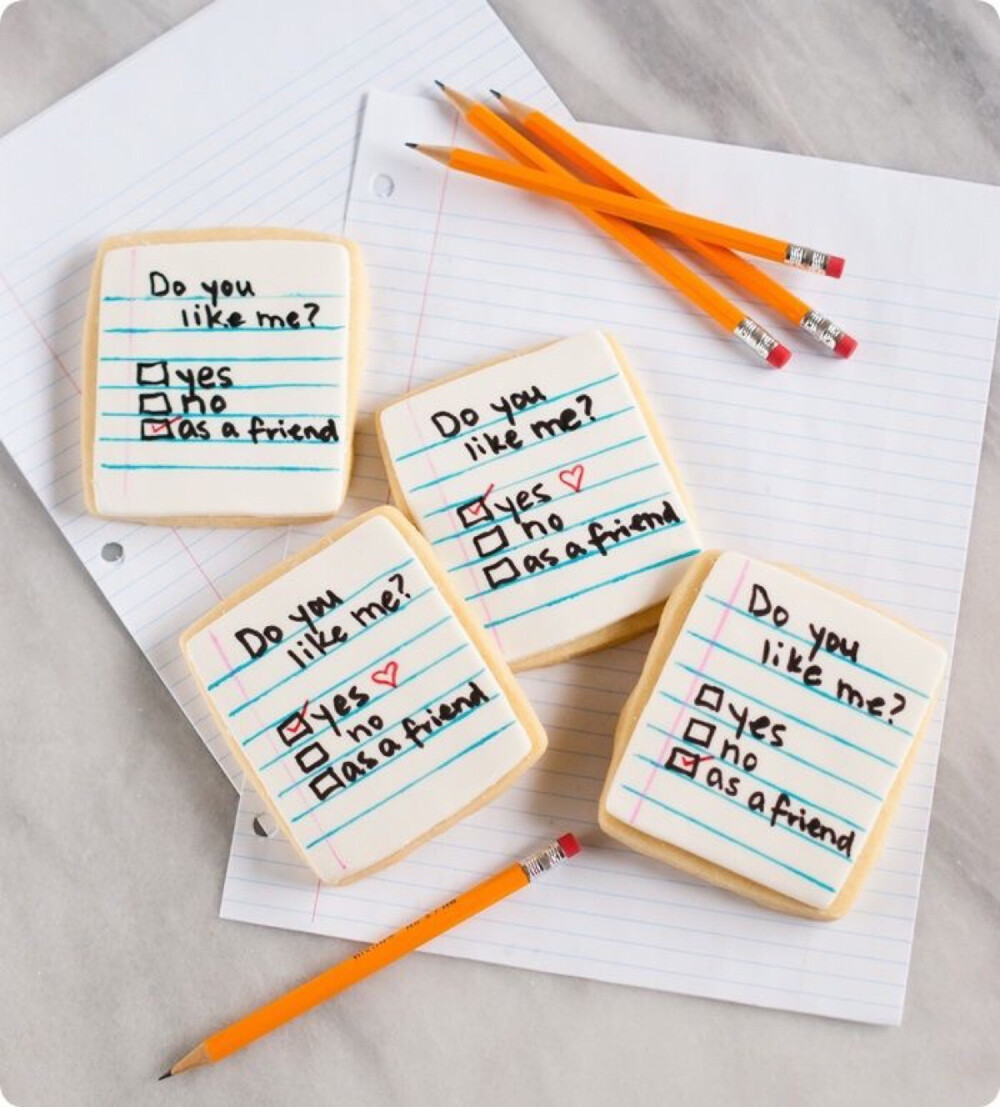 Do you
like me?
yes
no
as a friend
Do you
like me?
yes
no
as a friend
Do you
like me?
yes
no
as a friend
Do you
like me?
yes
no
as a friend